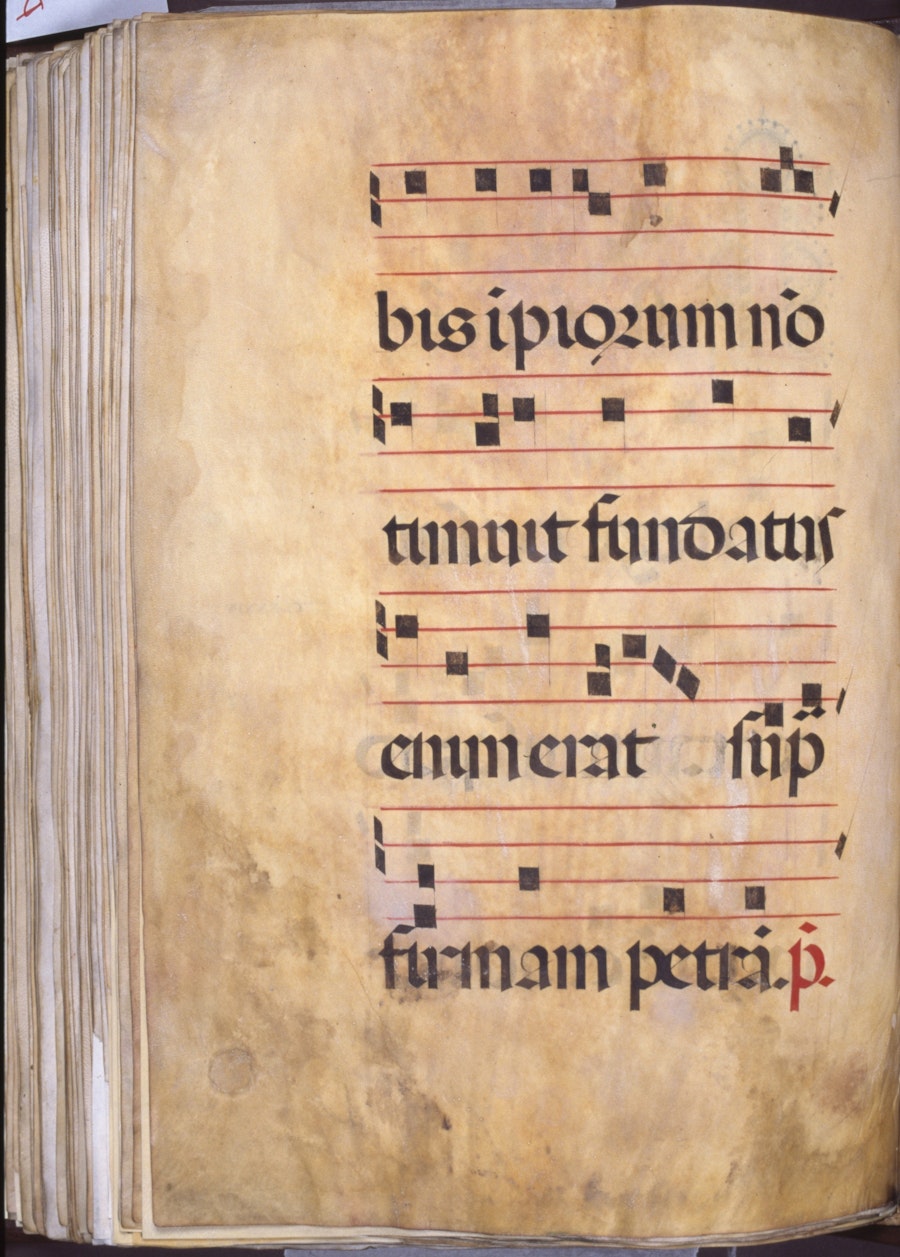 bis ipiorum nō
timuit fundatus
enim erat sup̄
firmam petrā. p̄.